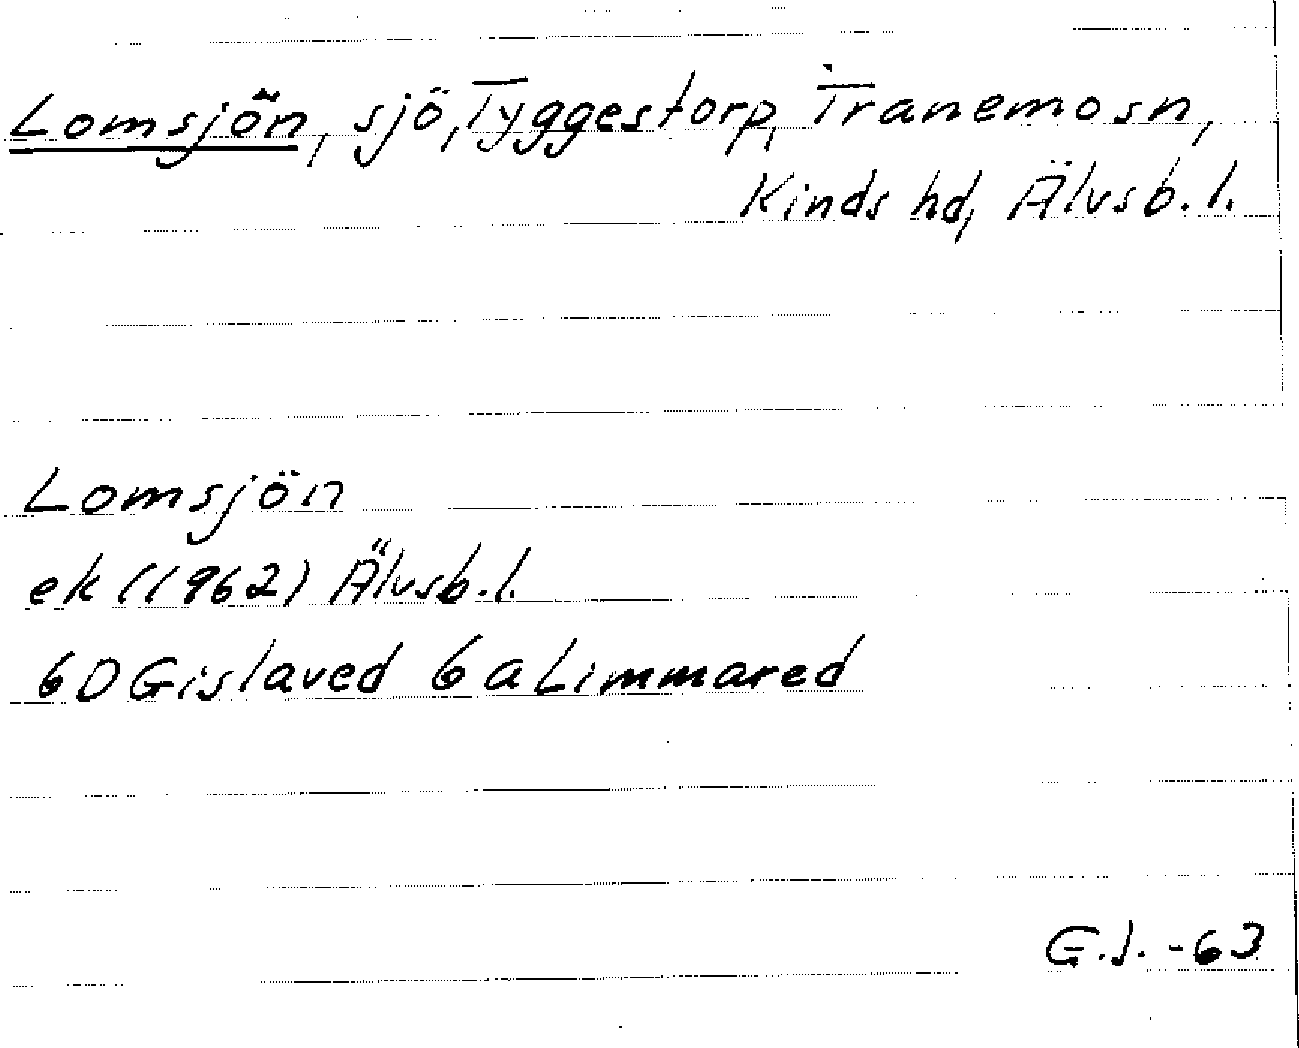 Lomsjön, sjö, Tyggestorp, Tranemosn,
Kinds hd, Älvsb. l.
Lomsjön
ek (1962) Älvsb. l.
6D Gislaved 6a Limmared
G.J. -63